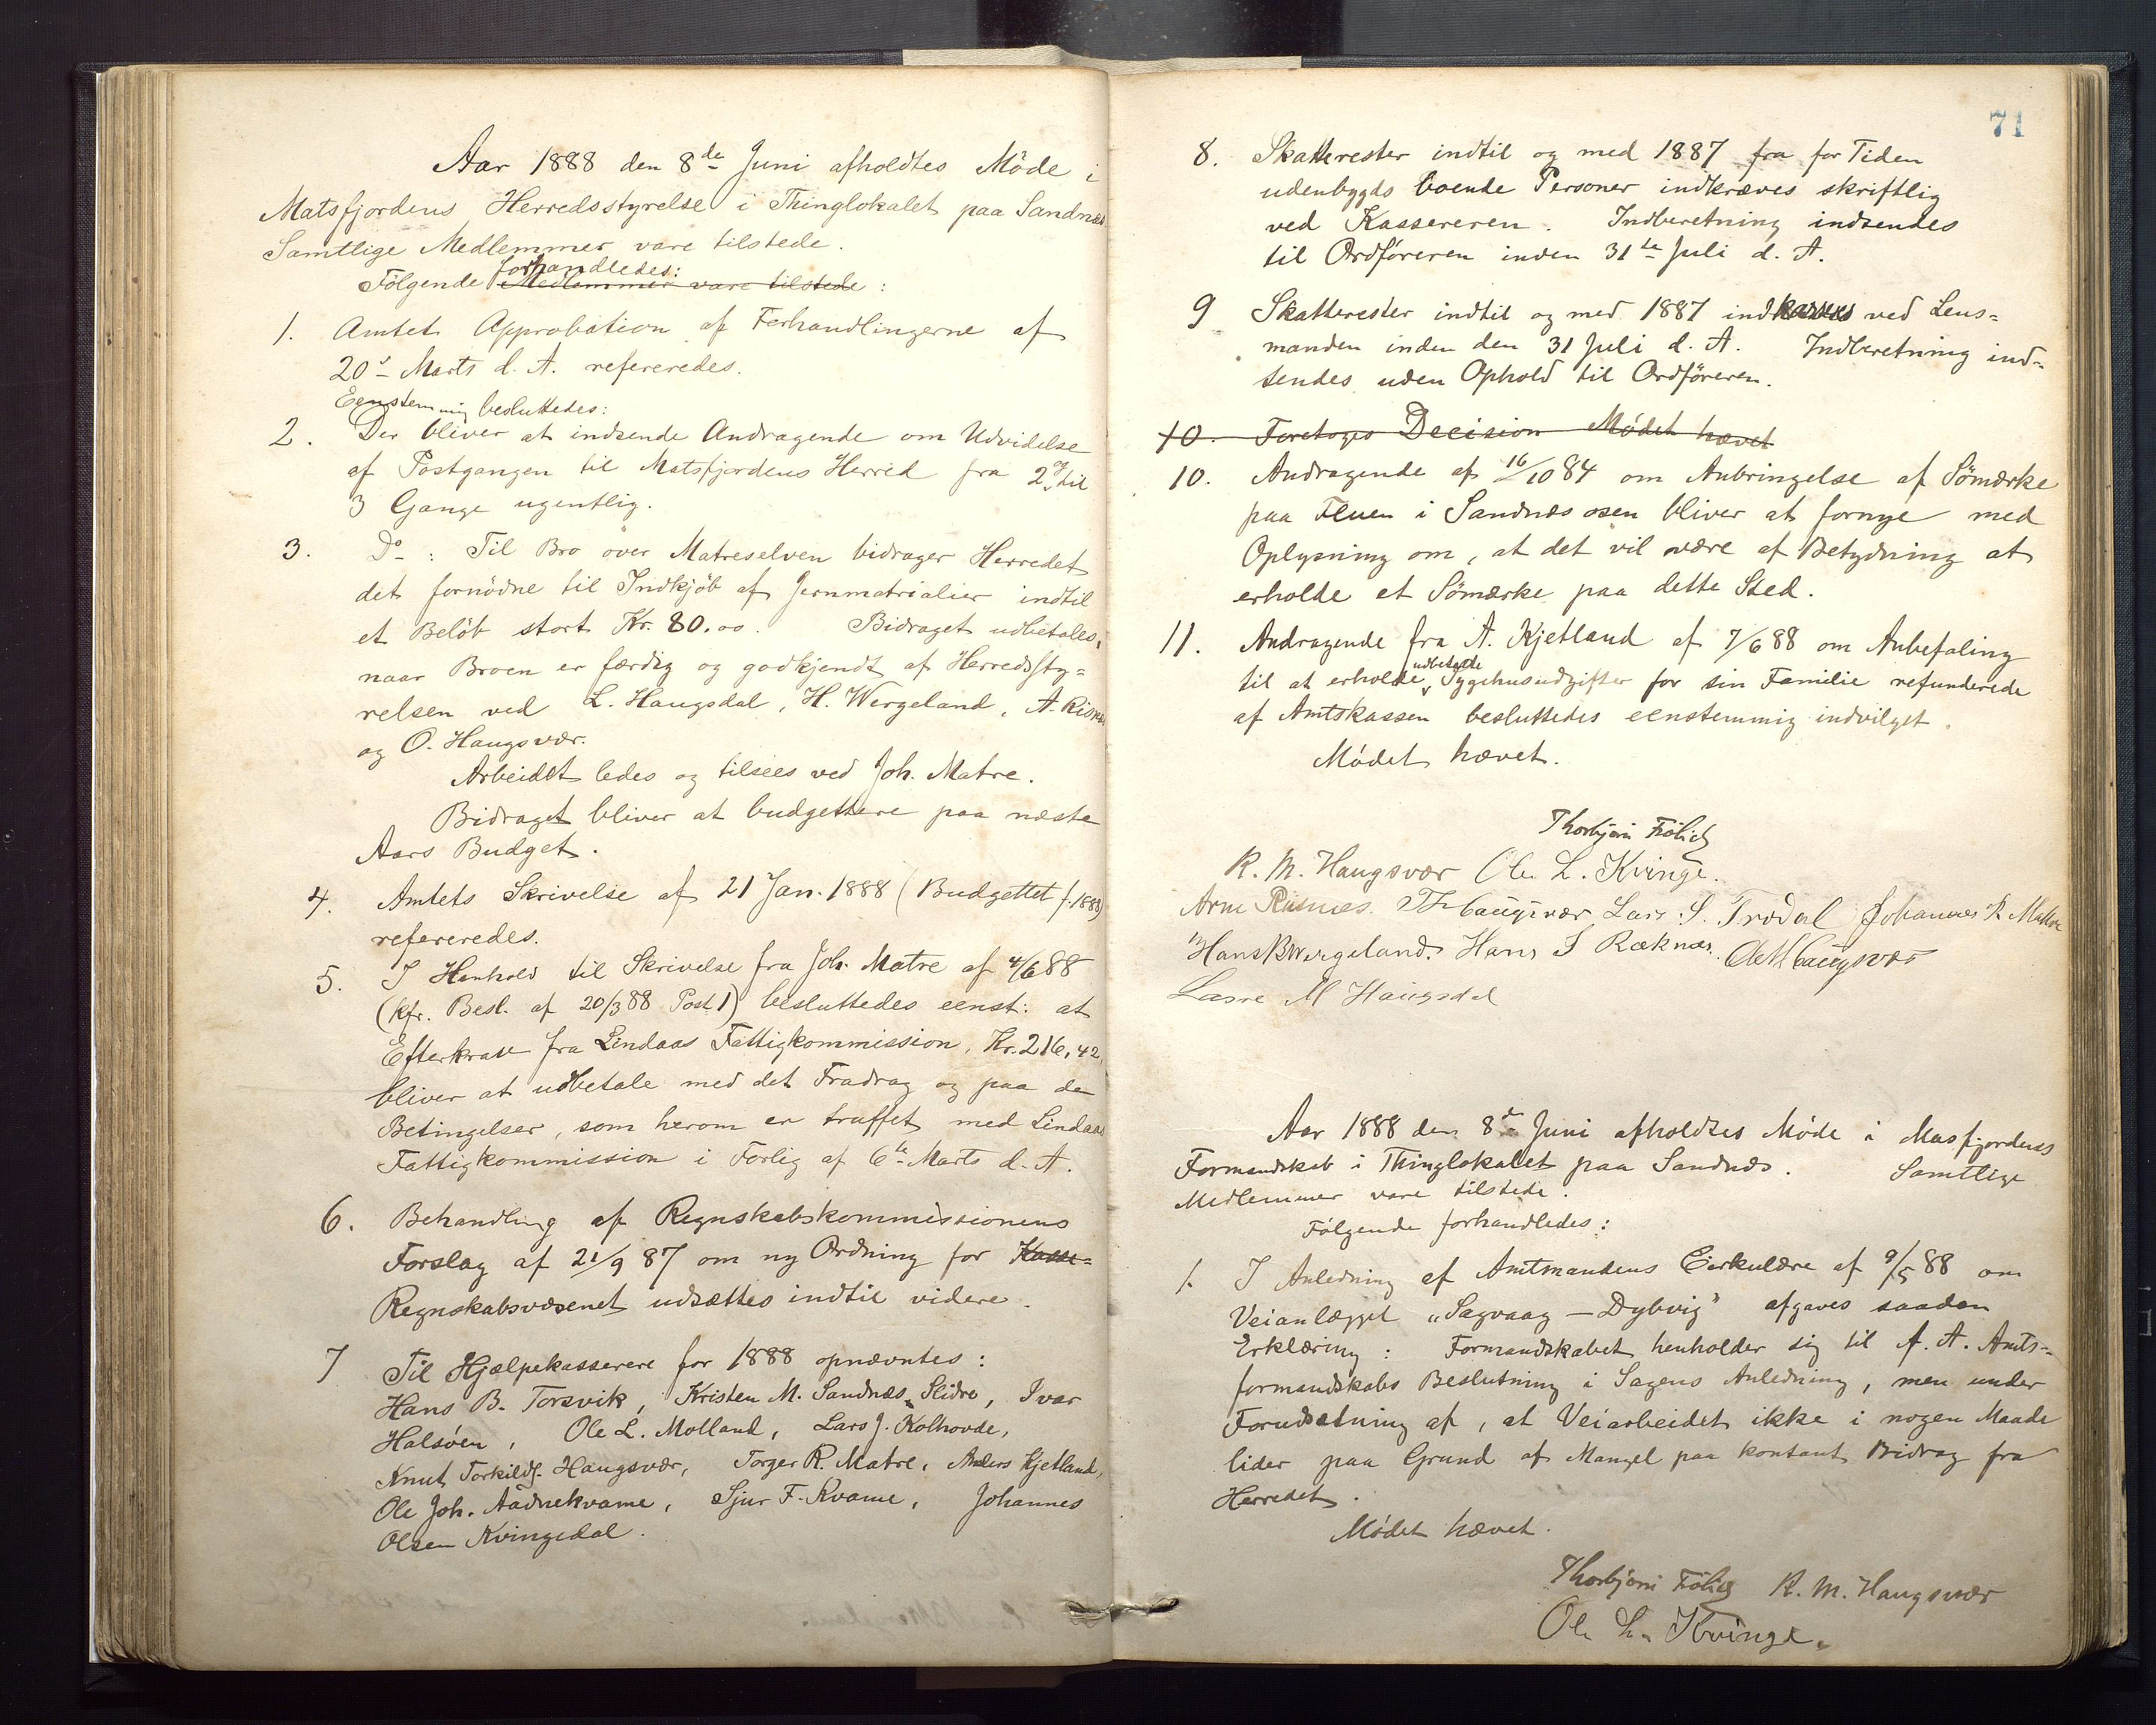 Aar 1888 den 8de Juni afholdtes Möde i
Matsfjordens Herredsstyrelse i Thinglokalet paa Sandnæs
Samtlige Medlemmer vare tilstede.
forhandledes:
Fölgende Medlemmer vare tilstede :
1. Amtets Approbation af Forhandlingerne af
20de Marts d. A. refereredes.
Eenstemmig besluttedes:
2. Der bliver at indsende Andragende om Udvidelse
af Postgangen til Matsfjordens Herred fra 2 til
3 Gange ugentlig.
3. Do : Til Bro over Matreselven bidrager Herredet
det fornödne til Indkjöb af Jernmatrialier indtil
et Belöb stort Kr. 80.00. Bidraget udbetales,
naar Broen er færdig og godkjendt af Herredssty=
relsen ved L. Haugsdal, H. Wergeland, A. Risnæs
og O. Haugsvær.
Arbeidet ledes og tilsees ved Joh. Matre.
Bidraget bliver at budgettere paa næste
Aars Budget.
4. Amtets Skrivelse af 21 Jan. 1888 (Budgettet f. 1888)
refereredes.
5. I Henhold til Skrivelse fra Joh. Matre af 4/6 88
(kfr. Besl. af 20/3 88 Post 1) besluttedes eenst: at
Efterkrav fra Lindaas Fattigkommission, Kr. 216,42,
bliver at udbetale med det Fradrag og paa de
Betingelser, som herom er truffet med Lindaas
Fattigkommission i Forlig af 6te Marts d. A.
6. Behandling af Regnskabskommissionens
Forslag af 21/9 87 om ny Ordning for Kasse=
Regnskabsvæsenet udsættes indtil videre.
7 Til Hjælpekasserere for 1888 opnævntes :
Hans B. Torsvik, Kristen M. Sandnæs, Slidre, Ivar
Halsöen, Ole L. Molland, Lars J. Kolhovde,
Knut Torkilds. Haugsvær, Torger R. Matre, Anders Kjetland,
Ole Joh. Aadnekvame, Sjur F. Kvame, Johannes
Olsen Kvingedal.
71
8. Skatterester indtil og med 1887 fra for Tiden
udenbygds boende Personer indkræves skriftlig
ved Kassereren. Indberetning indsendes
til Ordföreren inden 31te Juli d. A.
9 Skatterester indtil og med 1887 indkræves ved Lens=
manden inden den 31 Juli d. A. Indberetning ind=
sendes uden Ophold til Ordföreren.
10. Foretoges Decision Mödet hævet
10. Andragende af 16/10 84 om Anbringelse af Sömærke
paa Fluen i Sandnæsosen bliver at fornye med
Oplysning om, at det vil være af Betydning at
erholde et Sömærke paa dette Sted.
11. Andragende fra A. Kjetland af 7/6 88 om Anbefaling
udbetalte
til at erholde Sygehusudgifter for sin Familie refunderede
af Amtskassen besluttedes eenstemmig indvilget.
Mödet hævet.
Thorbjörn Frölich
R. M. Haugsvær Ole L. Kvinge.
Arne Risnes. Haugsvær Lars S. Trædal Johannes R. Matre
Hans B Wergeland. Hans S Ræknæs. Haugsvær
Lasse M Haugsdal
Aar 1888 den 8de Juni afholdtes Möde i Masfjordens
Formandskab i Thinglokalet paa Sandnæs. Samtlige
Medlemmer vare tilstede.
Fölgende forhandledes :
1. I Anledning af Amtmandens Cirkulære af 9/5 88 om
Veianlægget „Sagvaag – Dybvig" afgaves saadan
Erklæring : Formandskabet henholder sig til f. A. Amts=
formandskabs Beslutning i Sagens Anledning, men under
Forudsætning af, at Veiarbeidet ikke i nogen Maade
lider paa Grund af Mangel paa kontant Bidrag fra
Herredet.
Mödet hævet.
Thorbjörn Frölich R. M. Haugsvær
Ole L. Kvinge.